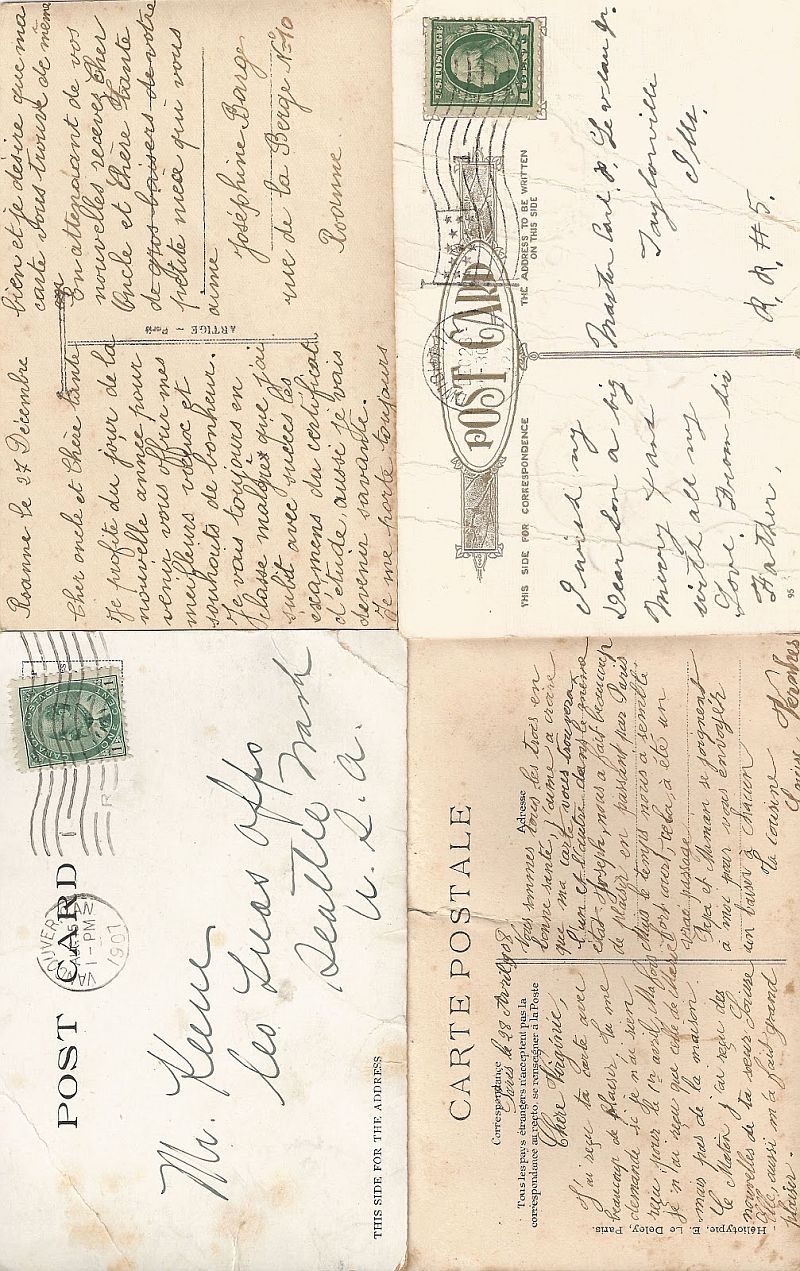 Roanne le 27 Décembre
Cher oncle et chère tante
Je profite du jour de la
nouvelle année pour
venir vous offrir mes
meilleurs vœux et
souhaits de bonheur.
Je vais toujours en
classe malgrés que j'ai
subit avec succès les
éxamens du certificat
d'étude aussi je vais
devenir savante.
Je me porte toujours
bien et je désire que ma
carte vous trouve de même
En attendant de vos
nouvelles recevez cher
Oncle et chère Tante
de gros baisers de votre
petite nièce qui vous
aime
Joséphine Barge
rue de la Berge No 10
Roanne.
ARTIGE - Paris
U.S. POSTAGE
1 CENT 1
POST CARD
THIS SIDE FOR CORRESPONDENCE
THE ADDRESS TO BE WRITTEN
ON THIS SIDE
I wish my
Dear Son a big
Merry Xmas
with all my
Love. From his
Father,
Master Carl
Taylorville
Ills.
R. R. #5.
95
POST CARD
VANCOUVER
1-PM
1907
Mr. Keene
Leo Lucas Offo
Seattle Wash
U. S. A.
THIS SIDE FOR THE ADDRESS
CARTE POSTALE
Correspondance
Tous les pays étrangers n'acceptent pas la
correspondance au recto, se renseigner à la Poste
Adresse
Paris le 28 Avril 1908
Chère Virginie,
J'ai reçu ta carte avec
beaucoup de plaisir, tu me
demande si je n'ai rien
reçu pour le 1er avril, Mais
je n'ai reçu que celle de Marie
mais pas de la maison
Ce Matin j'ai reçu des
nouvelles de ta sœur Louise
Elle aussi m'a fait grand
plaisir.
Nous sommes tous les trois en
bonne santé, j'aime à croire
que ma carte vous trouvera
l'un et l'autre dans le même
état. Joseph nous a fait beaucoup
de plaisir en passant par Paris
Mais le temps nous a semblé
fort court, cela, a été un
vrai passage
Papa et Maman se joignent
à moi pour vous envoyer
un baiser à chacun
Ta cousine
Louise
Héliotypie, E. Le Deley, Paris.